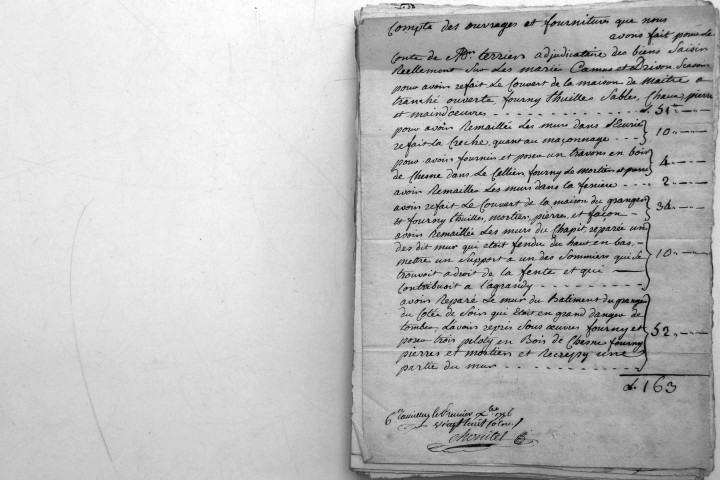 Compte des ouvrages et fournitures que nous
avons fait pour le
Conte de Mr. terrier adjudicataire des biens Saisir
Reellement Sur Les marié Camus et
pour avoir refait Le Couvert de la maison de Maitre a
tranché ouverte, fourny thuilles Sables, Chaux, pierre
et maind'oeuvres - - - - 51 -
pour avoir Remaillée Les murs dans
refait la Creche, quant au maçonnage - - 10 - -
pour avoir fournis et poser un travons en bois
de Chesne dans Le Cellier fourny Le mortier et 4 - -
avoir Remailles Les murs dans la feniere - - 2 - -
avoir refait Le Couvert de la maison du granger
et fourny thuilles, mortier, pierre, et façon - 34 - -
avoir Remaillée Les murs du Chapit, reparée un
des dit mur qui etoit fendu du haut en bas,
mettre un Support a un des Sommiers qui se
trouvoit adroit de la fente et qui
Contribuoit a l'agrandy - - - 10 - -
avoir Reparé Le mur du Batiment du granger
du Coté de Soir qui Etoit en grand danger de
tomber, L'avoir repris Sous oeuvres fourny et
poser trois piloty en Bois de Chesne fourny
pierres et mortier et Recrepy une
partie du mur - - - 52 - -
163
le premier
vingt huit